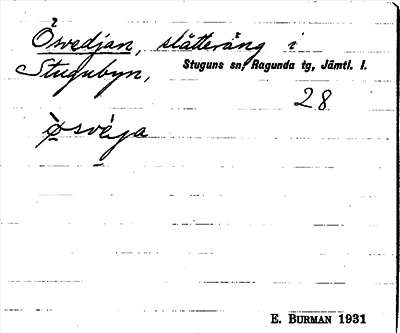 2
Ösvedjan, slåtteräng i
Stugubyn, Stuguns sn, Ragunda tg, Jämtl. l.
28
E. BURMAN 1931